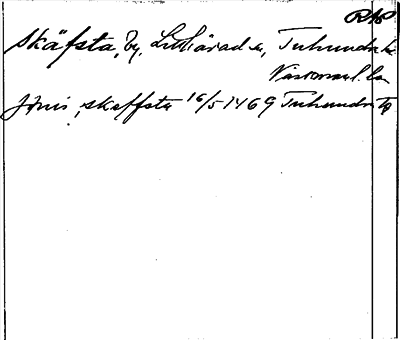 RAP
Skäfsta, by, Lillhärad sn, Tuhundra hd
Västmanl. län
Jönis, skeffsta 16/5 1469 Tuhundra